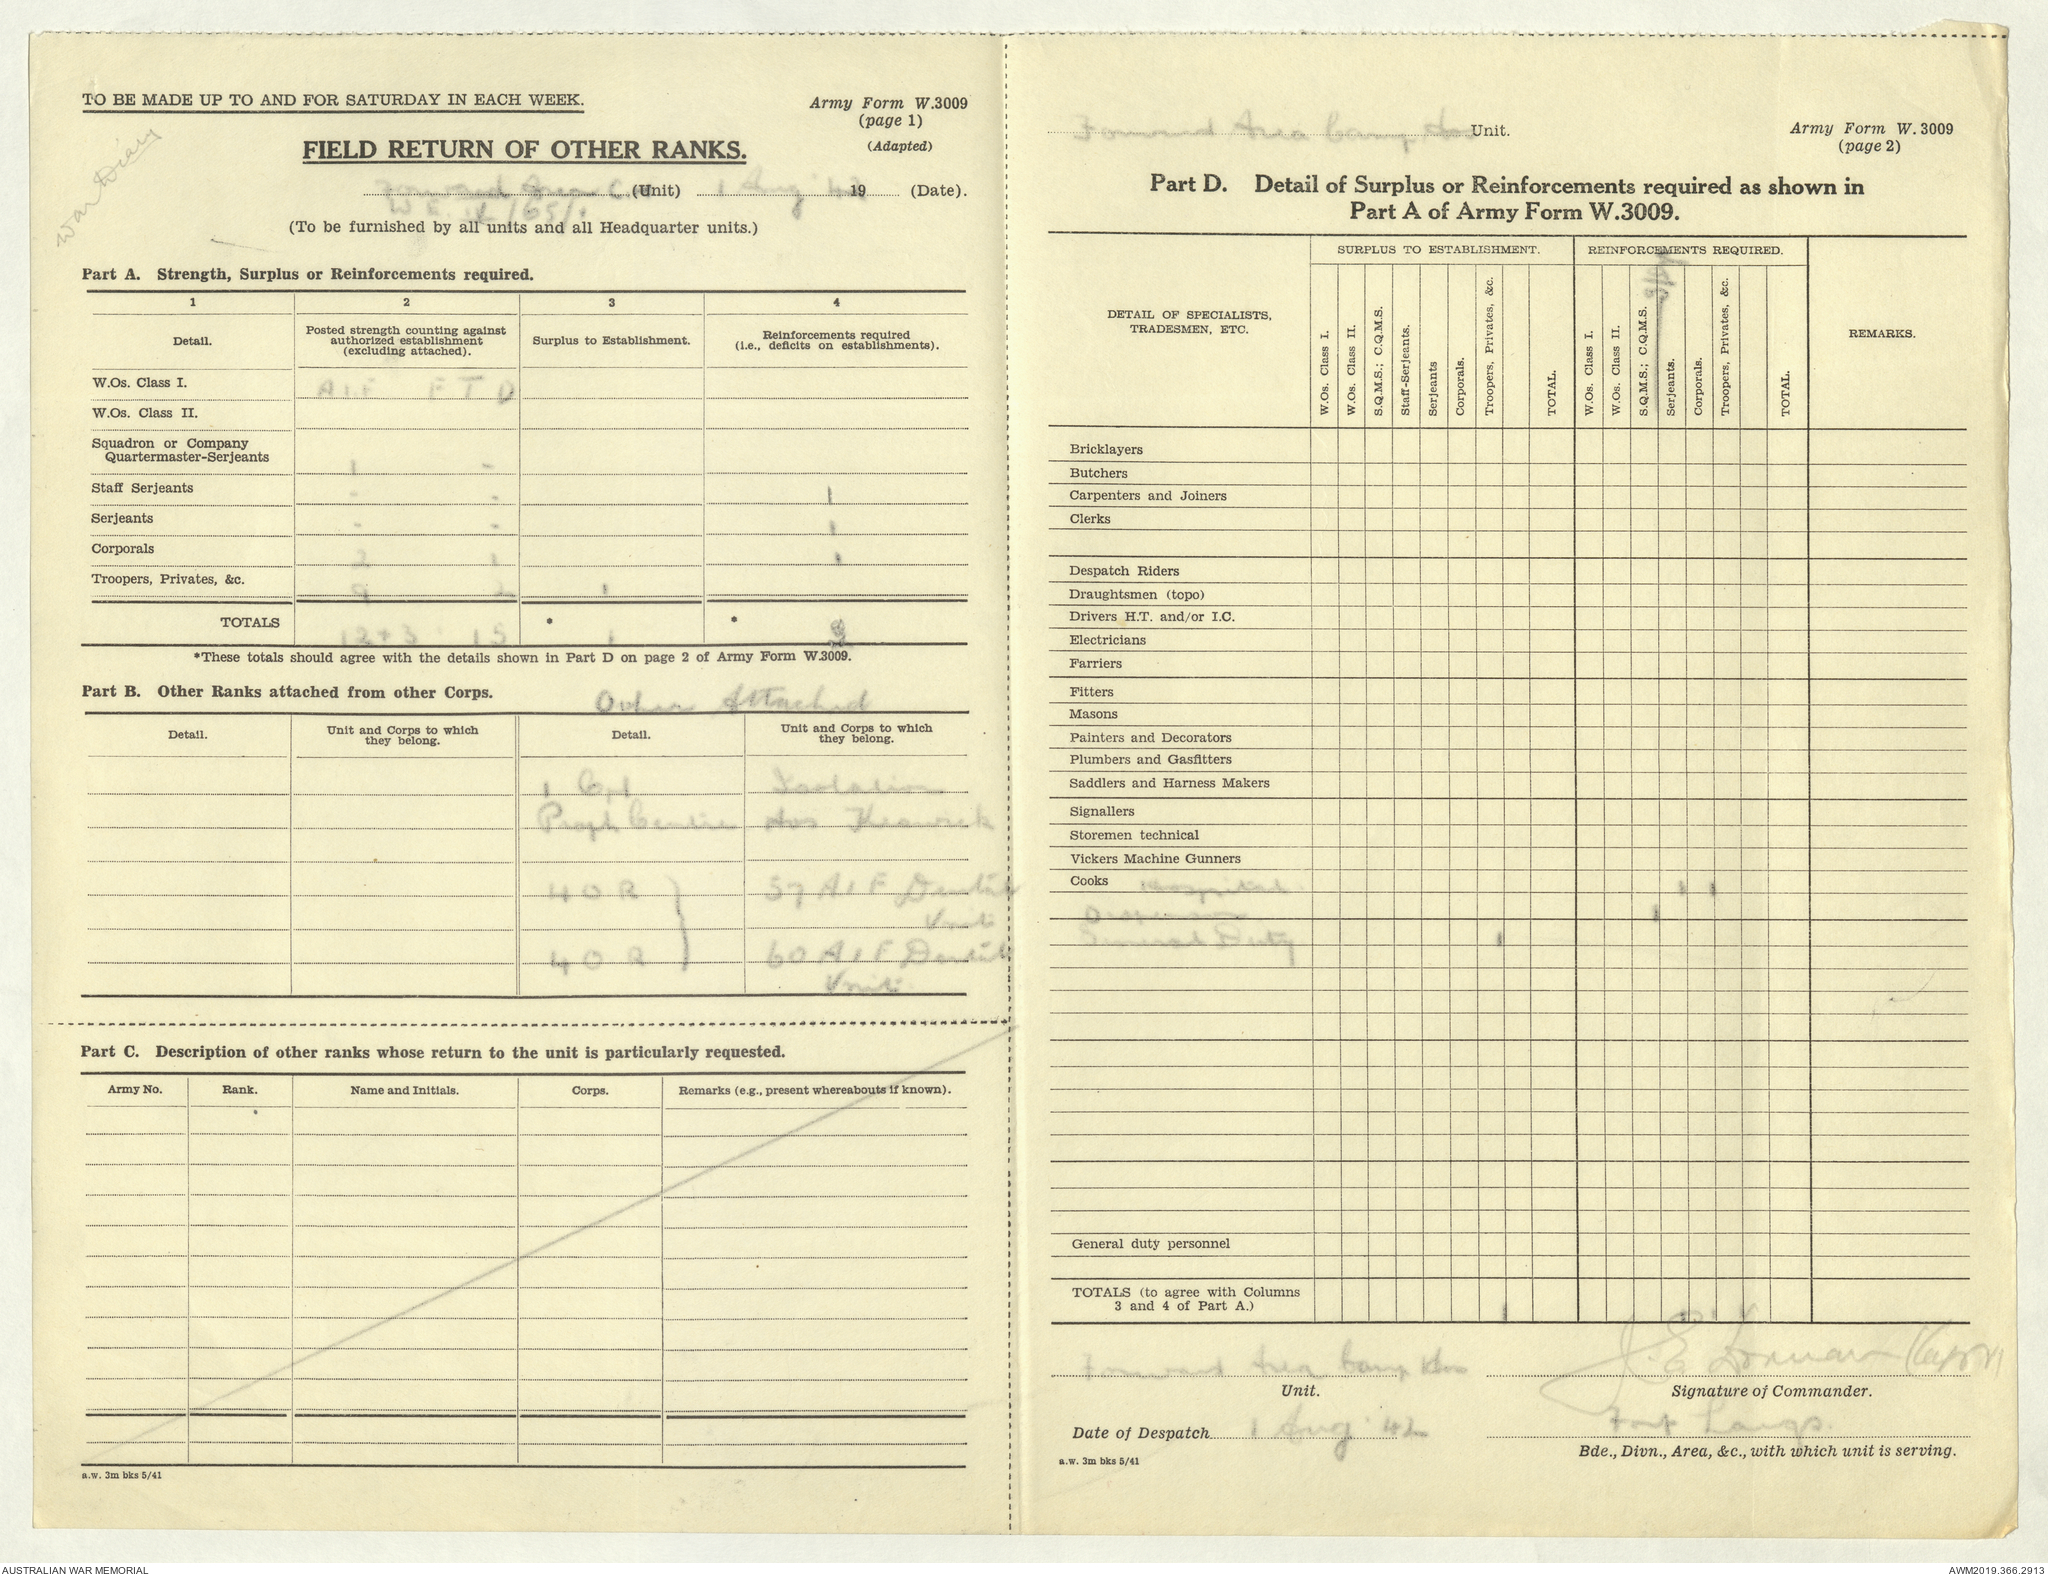 War Diary
TO BE MADE UP TO AND FOR SATURDAY IN EACH WEEK.
Army Form W.3009
(page 1)
(Adapted)
FIELD RETURN OF OTHER RANKS.
Forward Area (Unit) 1 Aug 1942 (Date).
(To be furnished by all units and all Headquarter units.)
Part A. Strength, Surplus or Reinforcements required.
1 2 3 4
Detail. Posted strength counting against authorized establishment (excluding attached). Surplus to Establishment. Reinforcements required (i.e., deficits on establishments).
W.Os. Class I. A.I.F F T D
W.Os. Class II.
Squadron or Company
Quartermaster-Serjeants 1 -
Staff Serjeants - - 1
Serjeants - - 1
Corporals 2 1 1
Troopers, Privates, &c. 9 2 1
TOTALS 12+3 15 * 1 * 3
*These totals should agree with the details shown in Part D on page 2 of Army Form W.3009.
Part B. Other Ranks attached from other Corps. Other Attached
Detail. Unit and Corps to which they belong. Detail. Unit and Corps to which they belong.
1 Cpl Isolation
Proph Centre Hos Keswick
4 O R 57 A I F Dental
Unit
4 O R 60 A I F Dental
Unit
Part C. Description of other ranks whose return to the unit is particularly requested.
Army No. Rank. Name and Initials. Corps. Remarks (e.g., present whereabouts if known).
a.w. 3m bks 5/41
Forward Area Camp Hos Unit.
Army Form W. 3009
(page 2)
Part D. Detail of Surplus or Reinforcements required as shown in
Part A of Army Form W.3009.
DETAIL OF SPECIALISTS, TRADESMEN, ETC.
SURPLUS TO ESTABLISHMENT. REINFORCEMENTS REQUIRED.
REMARKS.
W.Os. Class I. W.Os. Class II. S.Q.M.S.; C.Q.M.S. Staff-Serjeants. Serjeants Corporals. Troopers, Privates, &c. TOTAL.
W.Os. Class I. W.Os. Class II. S.Q.M.S.; C.Q.M.S. Serjeants. Corporals. Troopers, Privates, &c. TOTAL.
Bricklayers
Butchers
Carpenters and Joiners
Clerks
Despatch Riders
Draughtsmen (topo)
Drivers H.T. and/or I.C.
Electricians
Farriers
Fitters
Masons
Painters and Decorators
Plumbers and Gasfitters
Saddlers and Harness Makers
Signallers
Storemen technical
Vickers Machine Gunners
Cooks Hospital 1 1
Dispenser 1
General Duty 1
General duty personnel
TOTALS (to agree with Columns
3 and 4 of Part A.) 1
Forward Area Camp Hos
Unit.
Signature of Commander.
Date of Despatch 1 Aug 42
Bde., Divn., Area, &c., with which unit is serving.
a.w. 3m bks 5/41
AUSTRALIAN WAR MEMORIAL
AWM2019.366.2913